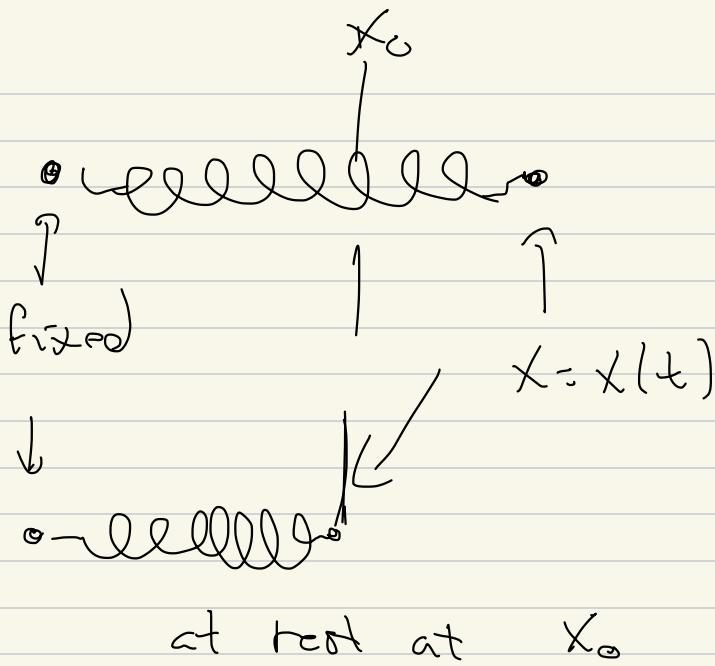 x₀
fixed
x = x(t)
at rest at x₀